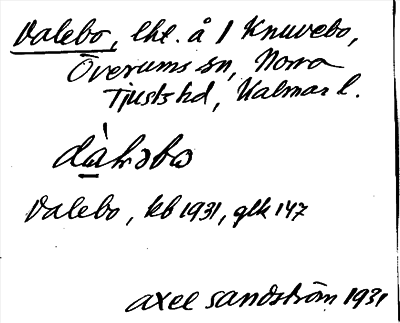 Dalebo, lht. å 1 Knuvebo,
Överums sn, Norra
Tjusts hd, Kalmar l.
dàlısbo
Dalebo, kb 1931, glk 147
Axel Sandström 1931